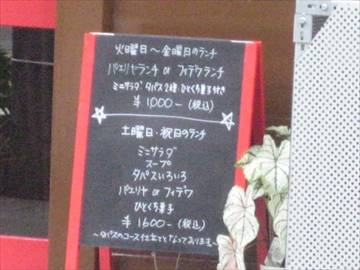 火曜日～金曜日のランチ
パエリヤランチ or フィデウランチ
ミニサラダ タパス2種 ひとくち菓子付き
¥1,000-(税込)
土曜日・祝日のランチ
ミニサラダ
スープ
タパスいろいろ
パエリヤ or フィデウ
ひとくち菓子
¥1600-(税込)
～タパスのコース仕立てとなっております～